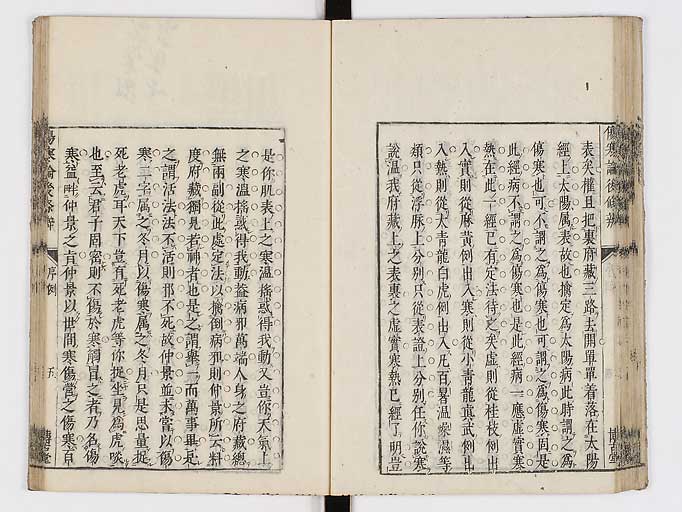 表矣權且把裏府藏三路去開單單着落在太陽
經上太陽属表故也擒定為太陽病此時謂之為
傷寒也可不謂之為傷寒也可謂之為傷寒固是
此經病不謂之為傷寒也是此經病一應虛實寒
熱在此一經已有定法待之矣虛則從桂枝倒出
入實則從麻黃倒出入寒則從小青龍真武倒出
入熱則從大青龍白虎倒出入凡百暑温燥濕等
類只從浮脉上分别只從表證上分别任你說寒
說温我府藏上之表裏之虛實寒熱已經了明豈
是你肌表上之寒温搖惑得我動又豈你天氣上
之寒温搖惑得我動益病邪萬端人身之府藏總
無兩副從此處定法以擒倒病邪則仲景所云料
度府藏獨見若神者也是之謂舉一而萬事畢是
之謂活法法不活則邪不死故仲景並未嘗以傷
寒二字属之冬月以傷寒属之冬月只是思量捉
死老虎耳天下豈有死老虎等你捉坐見為虎啖
也至云君子固密則不傷於寒觸冒之者乃名傷
寒益呼仲景之旨仲景以世間寒傷營之傷寒百
傷寒論後條辨
序例
五